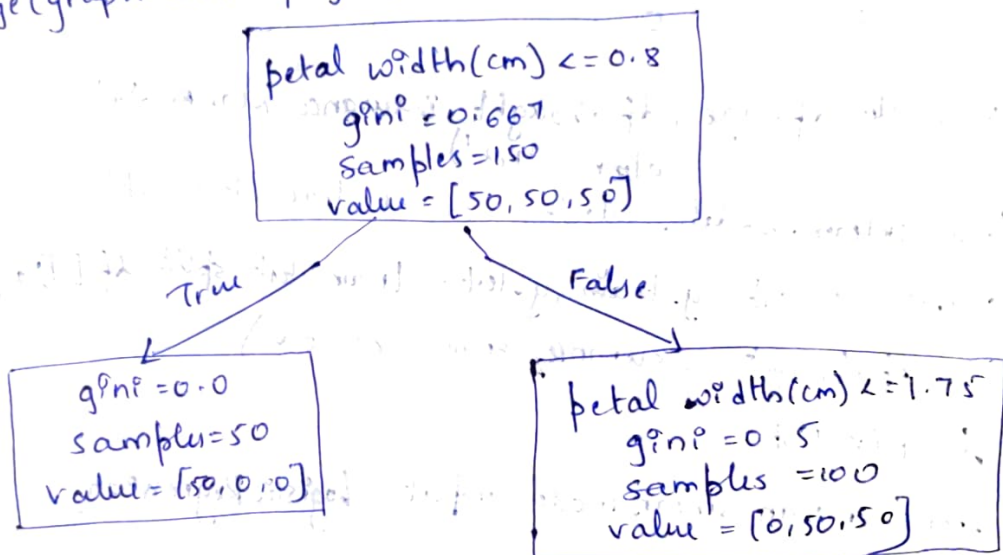 petal width(cm) <= 0.8
gini = 0.667
samples = 150
value = [50, 50, 50]
True
False
gini = 0.0
samples = 50
value = [50, 0, 0]
petal width(cm) <= 1.75
gini = 0.5
samples = 100
value = [0, 50, 50]